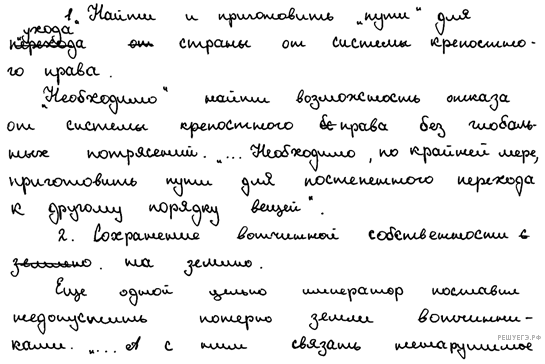 1. Найти и приготовить „пути" для
ухода
перехода от страны от системы крепостно-
го права.
„Необходимо" найти возможность отказа
от системы крепостного права без глобаль-
ных потрясений. „... Необходимо, по крайней мере,
приготовить пути для постепенного перехода
к другому порядку вещей".
2. Сохранение вотчинной собственности с
землено. на землю.
Еще одной целью император поставил
недопустить потерю земли вотчинни-
ками. „... А с ним связать ненарушимое
РЕШУЕГЭ.РФ